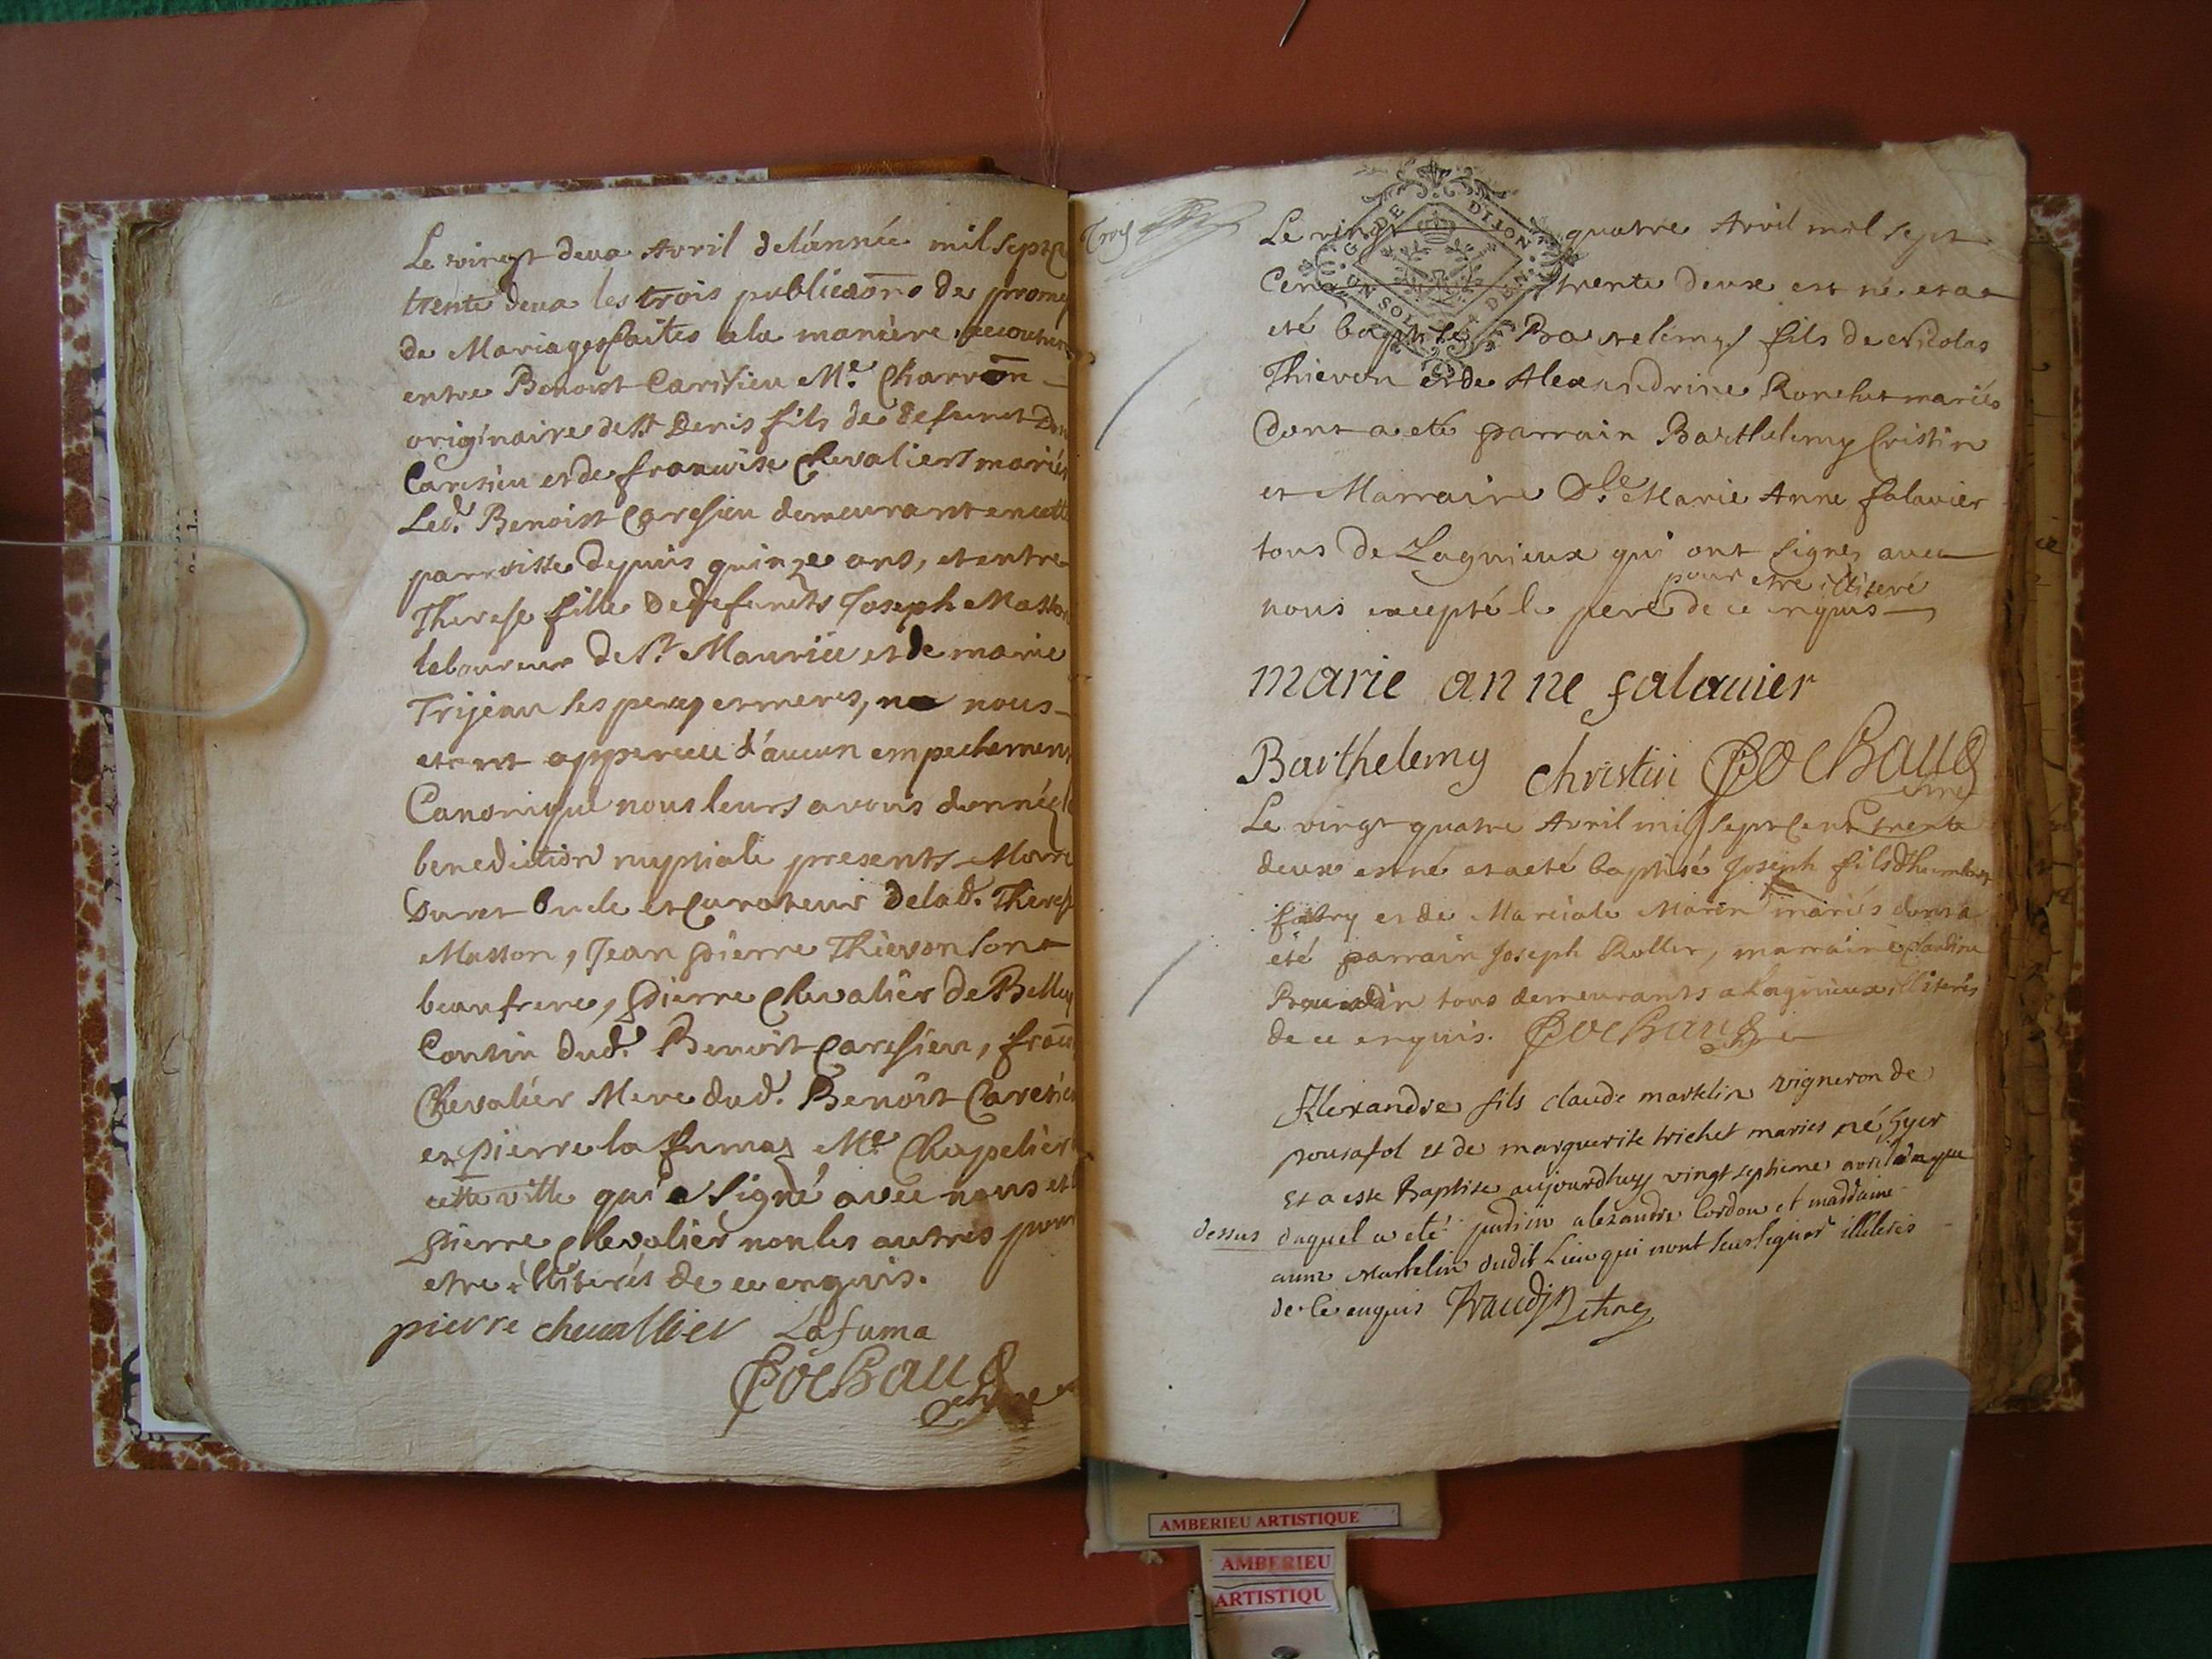 Le vingt deux Avril de l'année mil sept
trente deux les trois publicaōns de prome
de Mariages faites a la maniere accoutu
entre Benoist Carisieu Me. Charron
originaire de St Denis fils de defunct
Caresieu et de francoise Chevaliers mariés
Led. Benoist Caresieu demeurant en cette
parroisse depuis quinze ans, et entre
Therese fille de defuncts Joseph Masson
laboureur de St Maurice et de marie
Trijeau ses peres et meres, ne nous
etant apperceu d'aucun empechement
Canonique nous leurs avons donné
benediction nuptiale presents
Duret Oncle et Curateur de lad. Therese
Masson, Jean Pierre Thievon son
beaufrere, Pierre Chevalier de Belley
Cousin dud. Benoit Caresieu,
Chevalier Mere dud. Benoit Caresieu
et pierre la fumaz Me. Chapelier
cette ville qui a Signé avec nous et
Pierre Chevalier non les autres pour
etre illiterés de ce enquis.
pierre chevallier Lafuma
Cochaud
Troy
Le vingt quatre Avril mil sept
Cent trente deux est né et a
eté baptisé Bartelemy fils de Nicolas
Thievon et de Alexandrine Ronchet mariés
dont a eté parrain Barthelemy Cristin
et Marraine Dle Marie Anne falavier
tous de Lagnieux qui ont signez avec
pour etre illiteré
nous excepté le pere de ce enquis
GDE DIJON
UN SOL
marie anne falavier
Barthelemy christin Cochaud
Le vingt quatre Avril mil sept Cent trente
deux est né et a eté baptisé Joseph fils d'humbert
fabry et de Marciale Marin mariés dont a
eté parrain Joseph Rollet, marraine Claudine
tous demeurants a Lagnieux illiterés
de ce enquis. Cochaud
Alexandre fils claude martelin vigneron de
proulafol et de marguerite trichet maries né hyer
Et a este Baptise aujourdhuy vingt septieme avril
dessus duquel a eté alexandre Cordon et
anne Martelin dudit Lieu qui nont sceu signer illiterés
de Ce enquis
AMBERIEU ARTISTIQUE
AMBERIEU
ARTISTIQU